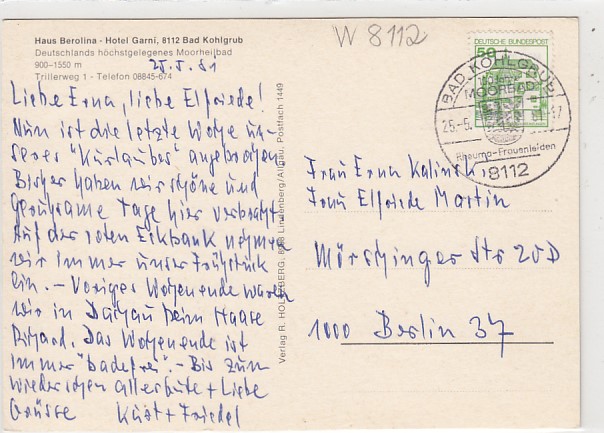 Haus Berolina - Hotel Garni, 8112 Bad Kohlgrub
Deutschlands höchstgelegenes Moorheilbad
900-1550 m
Trillerweg 1 - Telefon 08845-674
25.5.81
Liebe Erna, liebe Elfriede!
Nun ist die letzte Woche un-
seres "Kurlaubes" angebrochen
Bisher haben wir schöne und
geruhsame Tage hier verbracht
Auf der roten Eckbank nehmen
wir immer unser Frühstück
ein. - Voriges Wochenende waren
wir in Dachau beim Haase
Richard. Das Wochenende ist
immer "badefrei". - Bis zum
Wiedersehen alles Gute + Liebe
Grüsse Kurt + Friedel
Verlag R. HOLZBERG, Lindenberg/Allgäu, Postfach 1449
W 8112
DEUTSCHE BUNDESPOST
50
BAD KOHLGRUB
MOORBAD
25.-5.
Rheuma-Frauenleiden
8112
Frau Erna Kalinski,
Frau Elfriede Martin
Mörchinger Str 20D
1000 Berlin 37